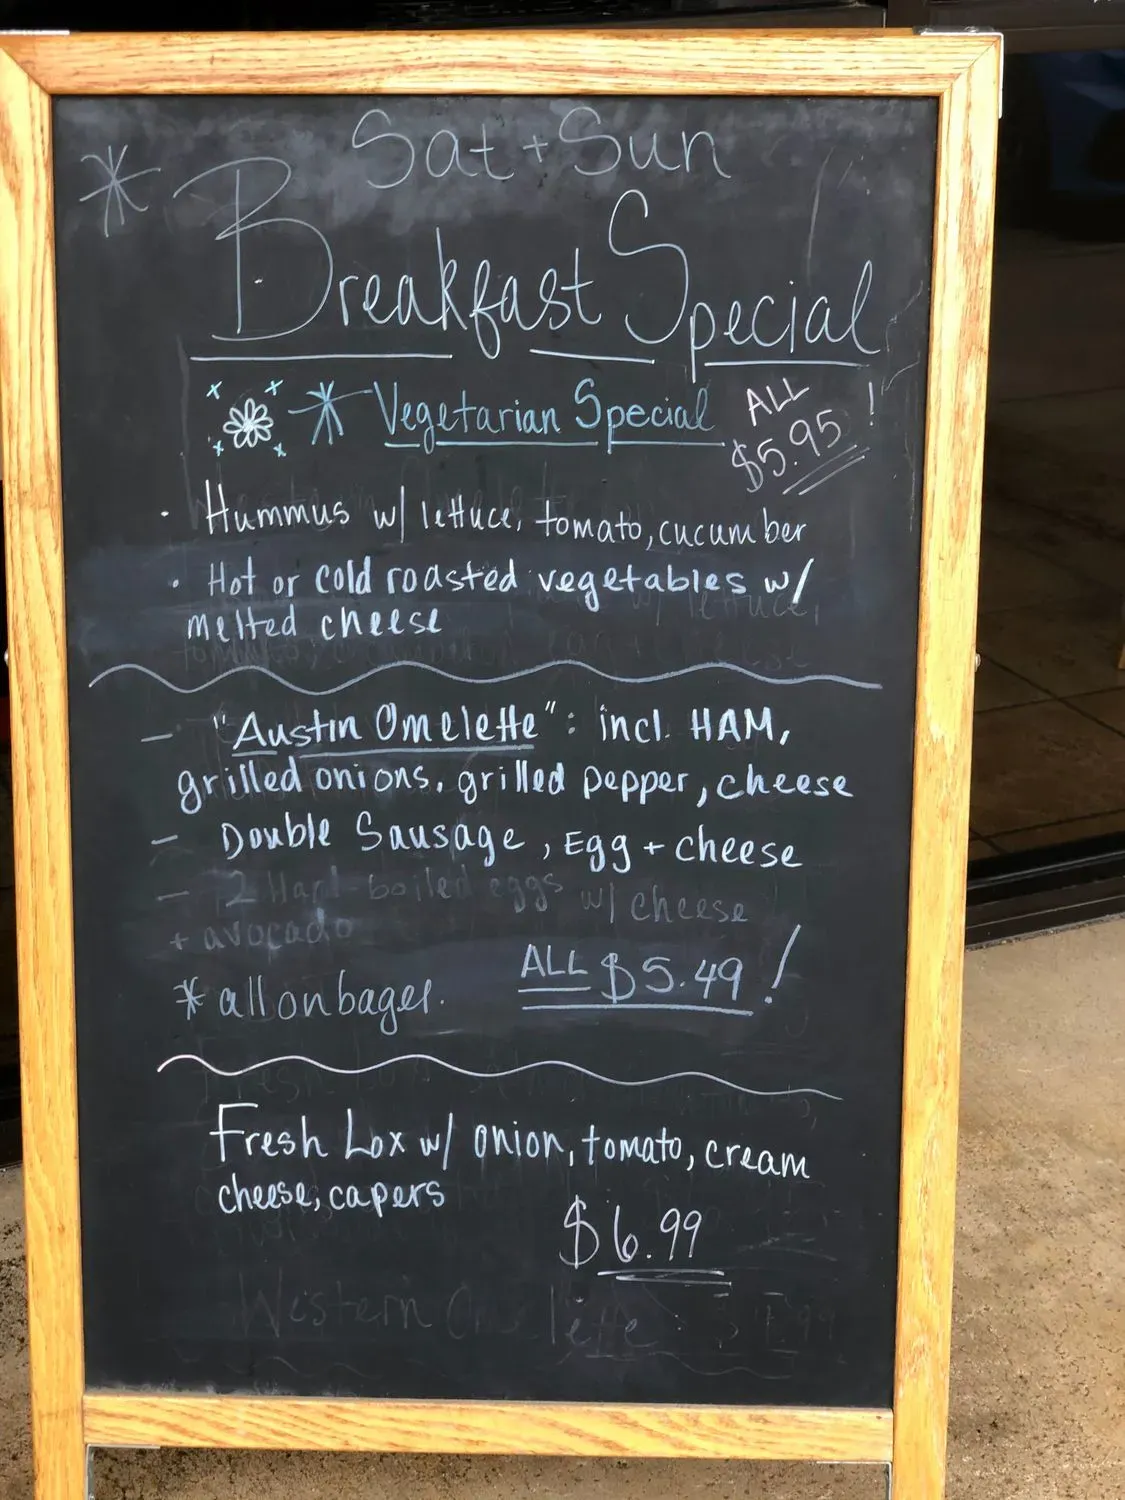 Sat + Sun
* Breakfast Special
* Vegetarian Special
ALL
$5.95!
· Hummus w/ lettuce, tomato, cucumber
· Hot or cold roasted vegetables w/
melted cheese
- "Austin Omelette": incl. HAM,
grilled onions, grilled pepper, cheese
- Double Sausage, Egg + cheese
- 2 Hard boiled eggs w/ cheese
+ avocado
* all on bagel. ALL $5.49!
Fresh Lox w/ onion, tomato, cream
cheese, capers
$6.99
Western Omelette: